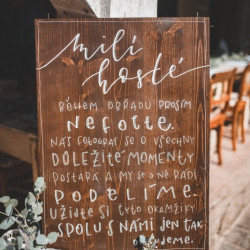 milí
hosté
BĚHEM OBŘADU PROSÍM
NEFOŤTE.
NÁŠ FOTOGRAF SE O VŠECHNY
DŮLEŽITÉ MOMENTY
POSTARÁ A MY SE O NĚ RÁDI
PODĚLÍME.
UŽIJTE SI TYTO OKAMŽIKY
SPOLU S NÁMI JEN TAK
DĚKUJEME.